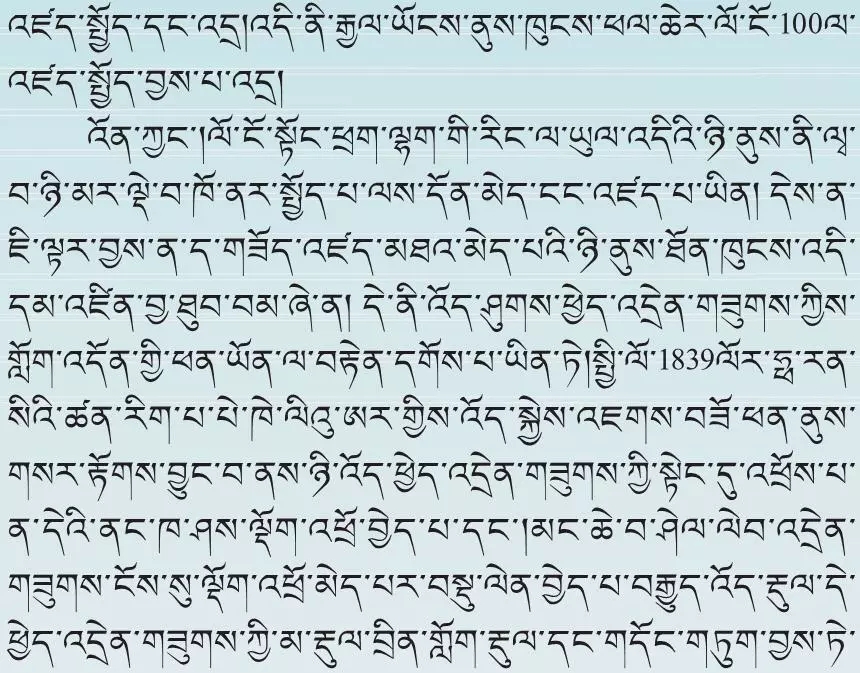 འཛད་སྤྱོད་དང་འདྲ།འདི་ནི་རྒྱལ་ཡོངས་ནུས་ཁུངས་ཕལ་ཆེར་ལོ་ངོ་100ལ་
འཛད་སྤྱོད་བྱས་པ་འདྲ།
འོན་ཀྱང་།ལོ་ངོ་སྟོང་ཕྲག་ལྷག་གི་རིང་ལ་ཡུལ་འདིའི་ཉི་ནུས་ནི་ལྭ་
བ་ཉི་མར་ལྡེ་བ་ཁོ་ནར་སྤྱོད་པ་ལས་དོན་མེད་ངང་འཛད་པ་ཡིན། དེས་ན་
ཇི་ལྟར་བྱས་ན་ད་གཟོད་འཛད་མཐའ་མེད་པའི་ཉི་ནུས་ཐོན་ཁུངས་འདི་
དམ་འཛིན་བྱ་ཐུབ་བམ་ཞེ་ན། དེ་ནི་འོད་ཤུགས་ཕྱེད་འདྲེན་གཟུགས་ཀྱིས་
གློག་འདོན་གྱི་ཕན་ཡོན་ལ་བརྟེན་དགོས་པ་ཡིན་ཏེ།སྤྱི་ལོ་1839ལོར་ཧྥ་རན་
སིའི་ཚན་རིག་པ་པེ་ཁེ་ལིའུ་ཨར་གྱིས་འོད་སྐྱེས་འཇགས་བཟོ་ཕན་ནུས་
གསར་རྟོགས་བྱུང་བ་ནས་ཉི་འོད་ཕྱེད་འདྲེན་གཟུགས་ཀྱི་སྟེང་དུ་འཕྲོས་པ་
ན་དེའི་ནང་ཁ་ཤས་ལྡོག་འཕྲོ་བྱེད་པ་དང་།མང་ཆེ་བ་ཤེལ་ལེབ་འདྲེན་
གཟུགས་ངོས་སུ་ལྡོག་འཕྲོ་མེད་པར་བསྡུ་ལེན་བྱེད་པ་བརྒྱུད་འོད་རྡུལ་དེ་
ཕྱེད་འདྲེན་གཟུགས་ཀྱི་མ་རྡུལ་བྲིན་གློག་རྡུལ་དང་གདོང་གཏུག་བྱས་ཏེ་